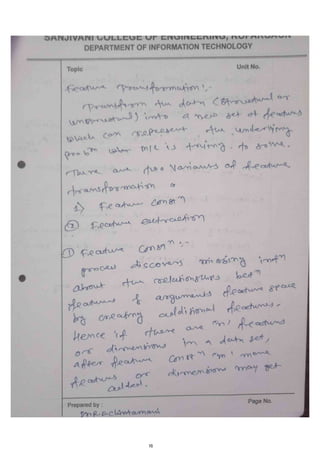 SANJIVANI COLLEGE OF ENGINEERING, KOPARGAON
DEPARTMENT OF INFORMATION TECHNOLOGY
Topic
Unit No.
Feature Transformation :-
Transform the data (structural or
unstructural) into a new set of features
which can represent the underlying
prob^m when M/c is trying to solve.
There are two variants of feature
transformation
1) Feature const^n
② Feature extraction
① Feature Const^n :-
process discovers missing inf^n
about the relationships bet^n
features & arguments feature space
by creating additional features.
Hence if there are 'n' features
or dimensions in a data set,
after feature const^n 'm' more
features or dimensions may get
added.
Prepared by :
Page No.